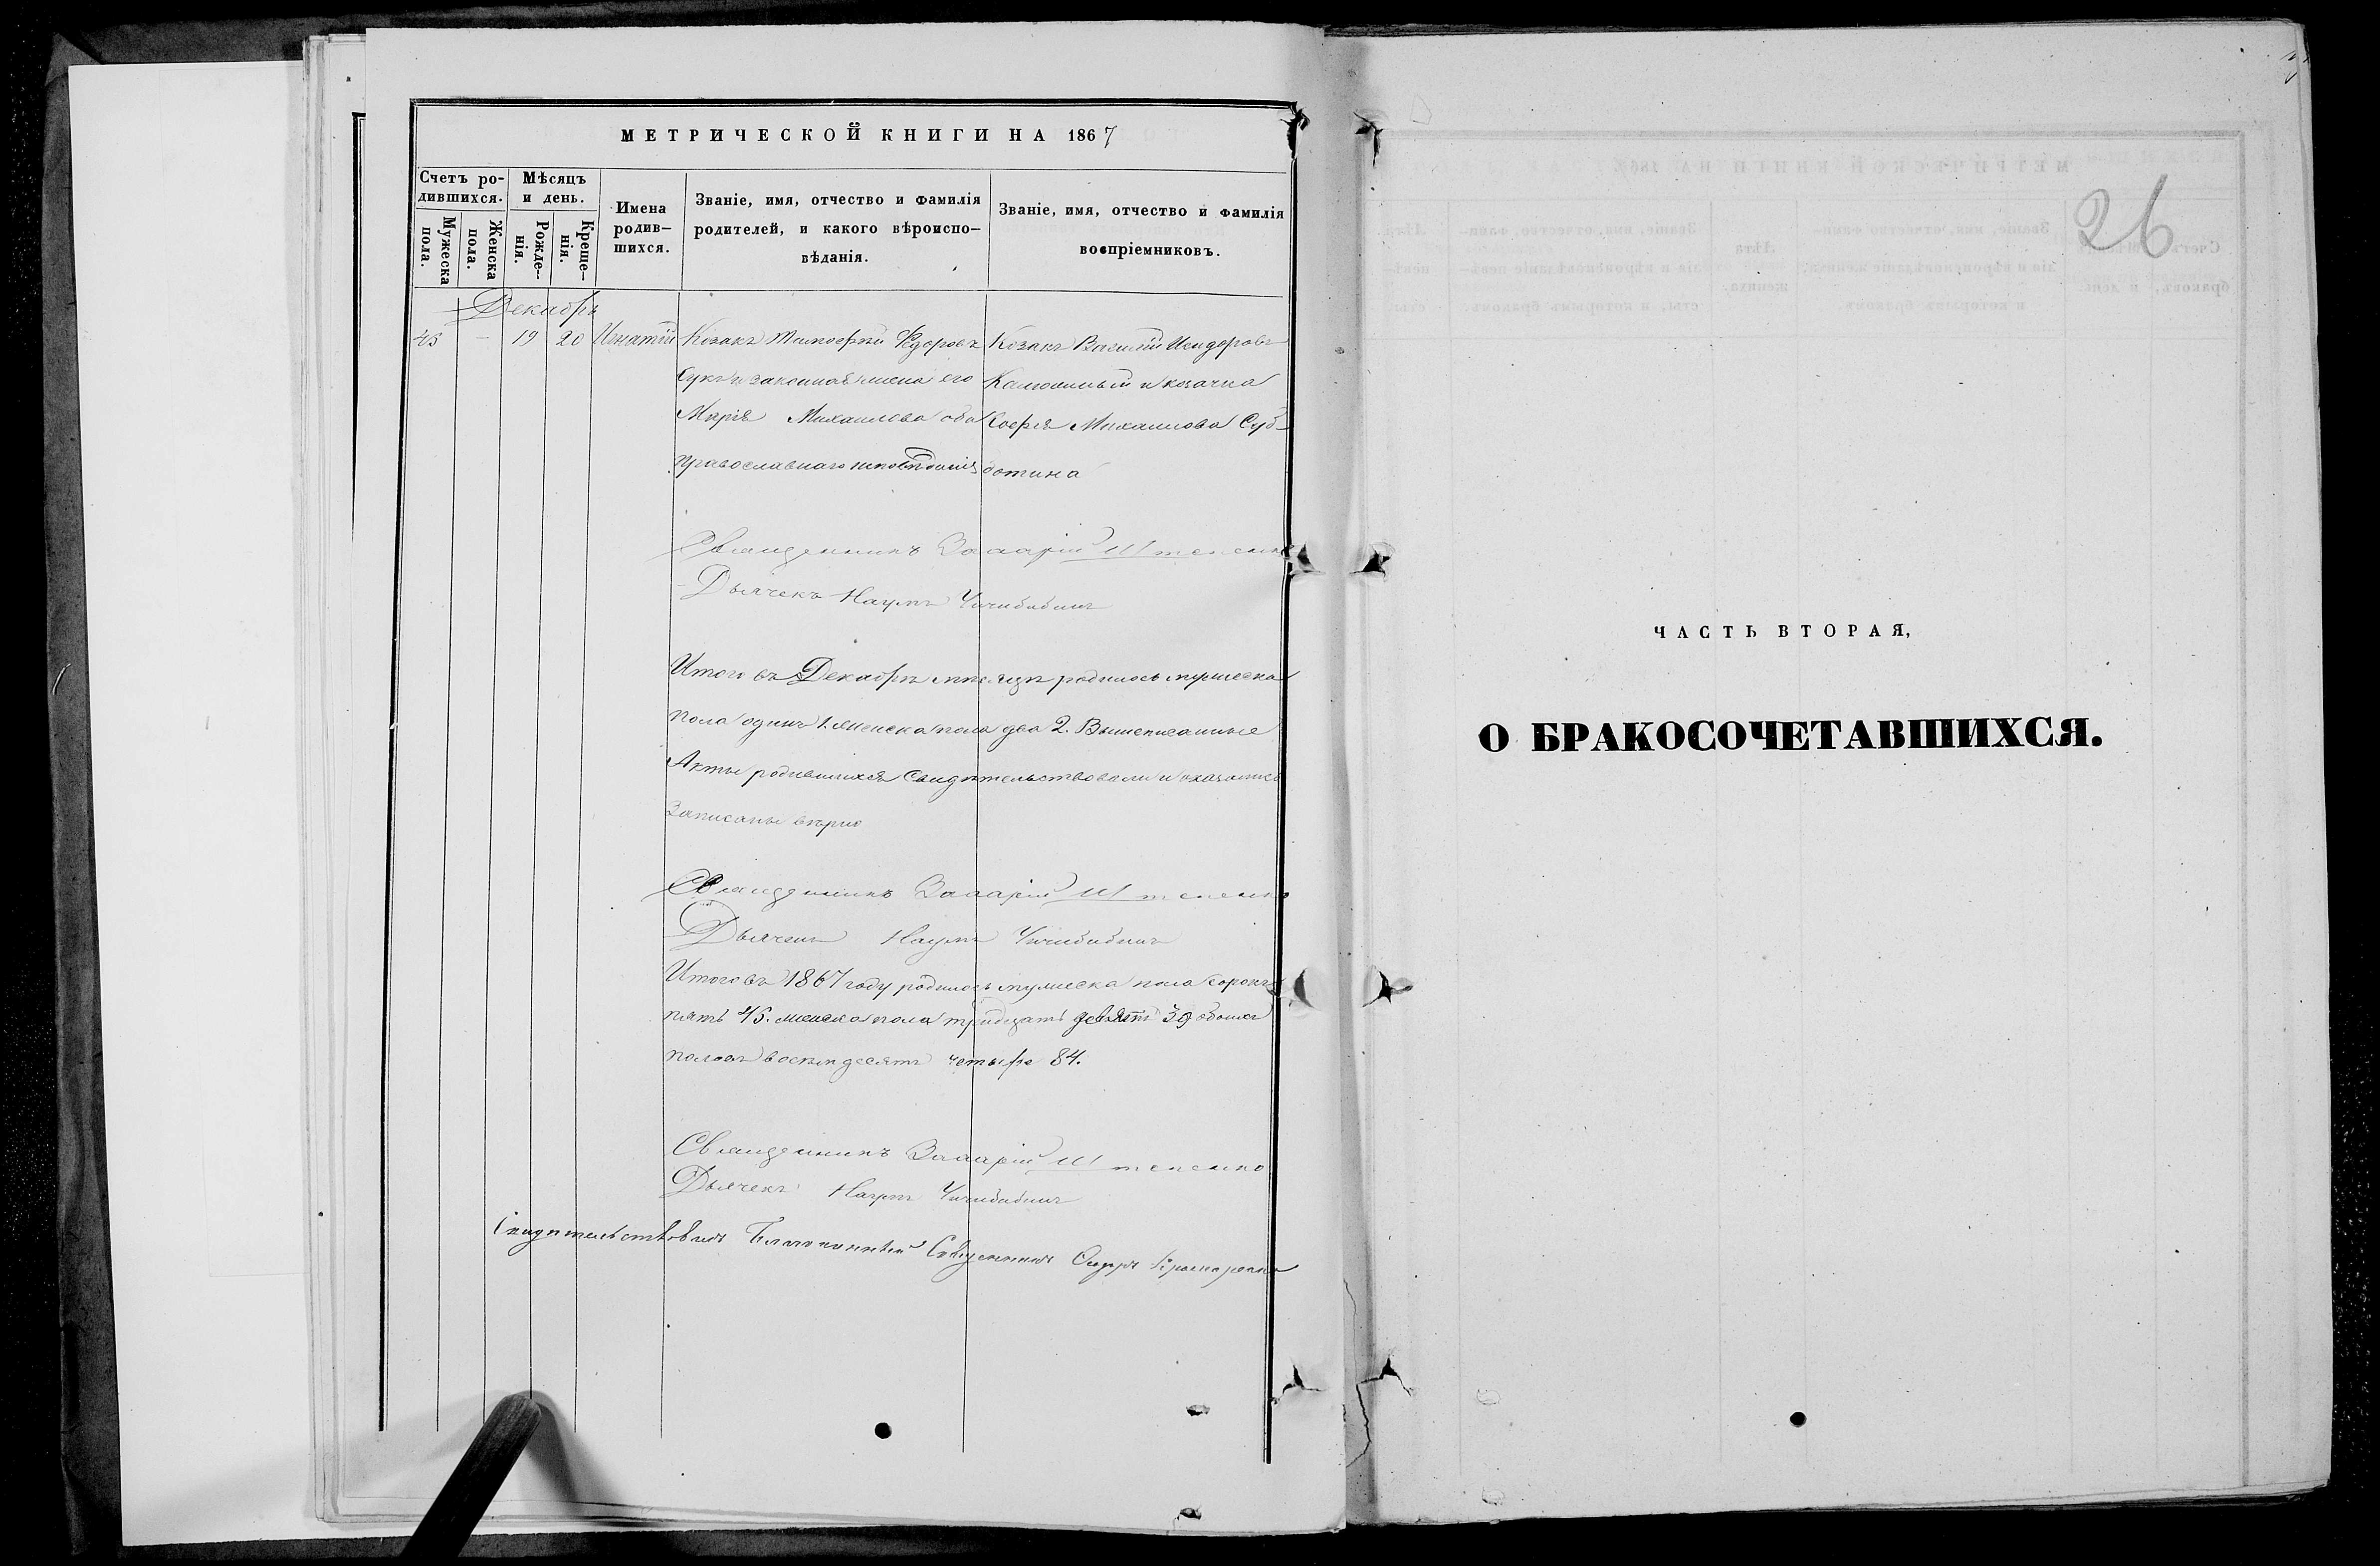 МЕТРИЧЕСКОЙ КНИГИ НА 1867
Счетъ ро-
дившихся.
Мужеска
пола.
Женска
пола.
Мѣсяцъ
и день.
Рожде-
нія.
Креще-
нія.
Имена
родив-
шихся.
Званіе, имя, отчество и фамилія
родителей, и какого вѣроиспо-
вѣданія.
Званіе, имя, отчество и фамилія
воспріемниковъ.
Декабрь
45 — 19 20 Игнатій Козакъ Тимофѣй Федоровъ
Сукъ и законная жена его
Марія Михаилова оба
православнаго исповѣданія
Козакъ Василій Исидоровъ
и козачка
Софія Михаилова Суб-
ботина
Священникъ Захарій Штепенко
Дьячекъ Наумъ Чичибабинъ
Итого въ Декабрѣ мѣсяцѣ родилось мужеска
пола одинъ 1. женска пола два 2. Вышеписанные
Акты родившихся Свидѣтельствовали и оказались
записаны вѣрно
Священникъ Захарій Штепенко
Дьячекъ Наумъ Чичибабинъ
Итого въ 1867 году родилось мужеска пола сорокъ
пять 45. женска пола тридцать девять 39 обоихъ
половъ восемдесятъ четыре 84.
Священникъ Захарій Штепенко
Дьячекъ Наумъ Чичибабинъ
Свидѣтельствовалъ Благочинный Священникъ
26
ЧАСТЬ ВТОРАЯ,
О БРАКОСОЧЕТАВШИХСЯ.